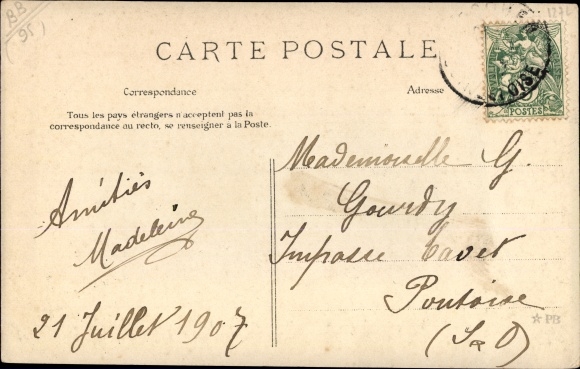 BB
(95)
1272
CARTE POSTALE
Correspondance
Adresse
Tous les pays étrangers n'acceptent pas la
correspondance au recto, se renseigner à la Poste.
OISE
POSTES
Amitiés
Madeleine
21 Juillet 1907
Mademoiselle G.
Gourdy
Impasse Cavet
Pontoise
(S & O)
★ PB